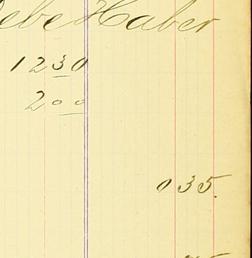 Debe Haber
12 30
2 00
0 35.